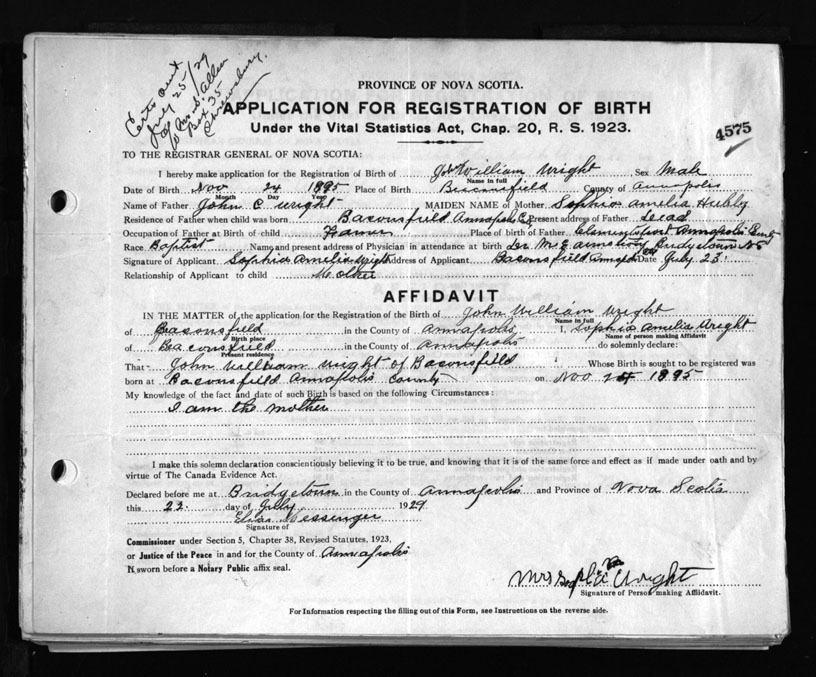 Certs sent
July 25/29
to Mrs. D. Allen
Box 25
Shrewsbury.
PROVINCE OF NOVA SCOTIA.
APPLICATION FOR REGISTRATION OF BIRTH
Under the Vital Statistics Act, Chap. 20, R. S. 1923.
4575
TO THE REGISTRAR GENERAL OF NOVA SCOTIA:
I hereby make application for the Registration of Birth of William Wright Sex Male
Name in full
Date of Birth Nov 24 1895 Place of Birth Beaconsfield County of Annapolis
Month Day Year
Name of Father John C Wright MAIDEN NAME of Mother Sophia Amelia Hubly
Residence of Father when child was born Baconsfield Annapolis Co Present address of Father Dead
Occupation of Father at Birth of child Farmer Place of Birth of Father Clementsport Annapolis
Race Baptist Name and present address of Physician in attendance at birth Dr M E Armstrong Bridgetown NS
Signature of Applicant Sophia Amelia Wright Address of Applicant Baconsfield Annapolis Date July 23
Relationship of Applicant to child Mother
AFFIDAVIT
IN THE MATTER of the application for the Registration of the Birth of John William Wright
Name in full
of Beaconsfield in the County of Annapolis I, Sophia Amelia Wright
Birth place Name of person making Affidavit
of Beaconsfield in the County of Annapolis do solemnly declare:
Present residence
That John William Wright of Baconsfield Whose Birth is sought to be registered was
born at Baconsfield Annapolis County on Nov 24 1895
My knowledge of the fact and date of such Birth is based on the following Circumstances:
I am the mother
I make this solemn declaration conscientiously believing it to be true, and knowing that it is of the same force and effect as if made under oath and by
virtue of The Canada Evidence Act.
Declared before me at Bridgetown in the County of Annapolis and Province of Nova Scotia
this 23 day of July 1929
Messenger
Signature of
Commissioner under Section 5, Chapter 38, Revised Statutes, 1923,
or Justice of the Peace in and for the County of Annapolis
If sworn before a Notary Public affix seal.
Mrs Sophia Wright
Signature of Person making Affidavit.
For Information respecting the filling out of this Form, see Instructions on the reverse side.